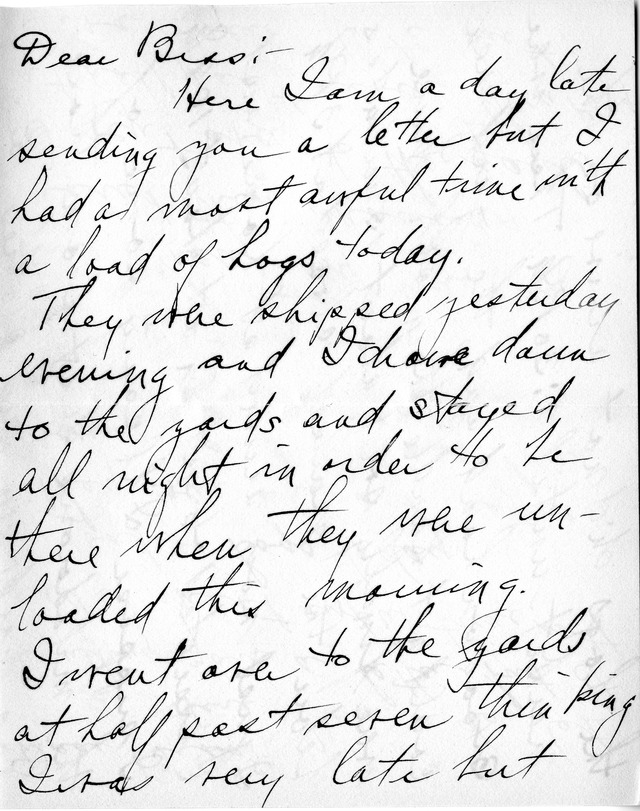 Dear Bess:-
Here I am a day late
sending you a letter but I
had a most awful time with
a load of hogs today.
They were shipped yesterday
evening and I drove down
to the yards and stayed
all night in order to be
there when they were un-
loaded this morning.
I went over to the yards
at half past seven thinking
I was very late but